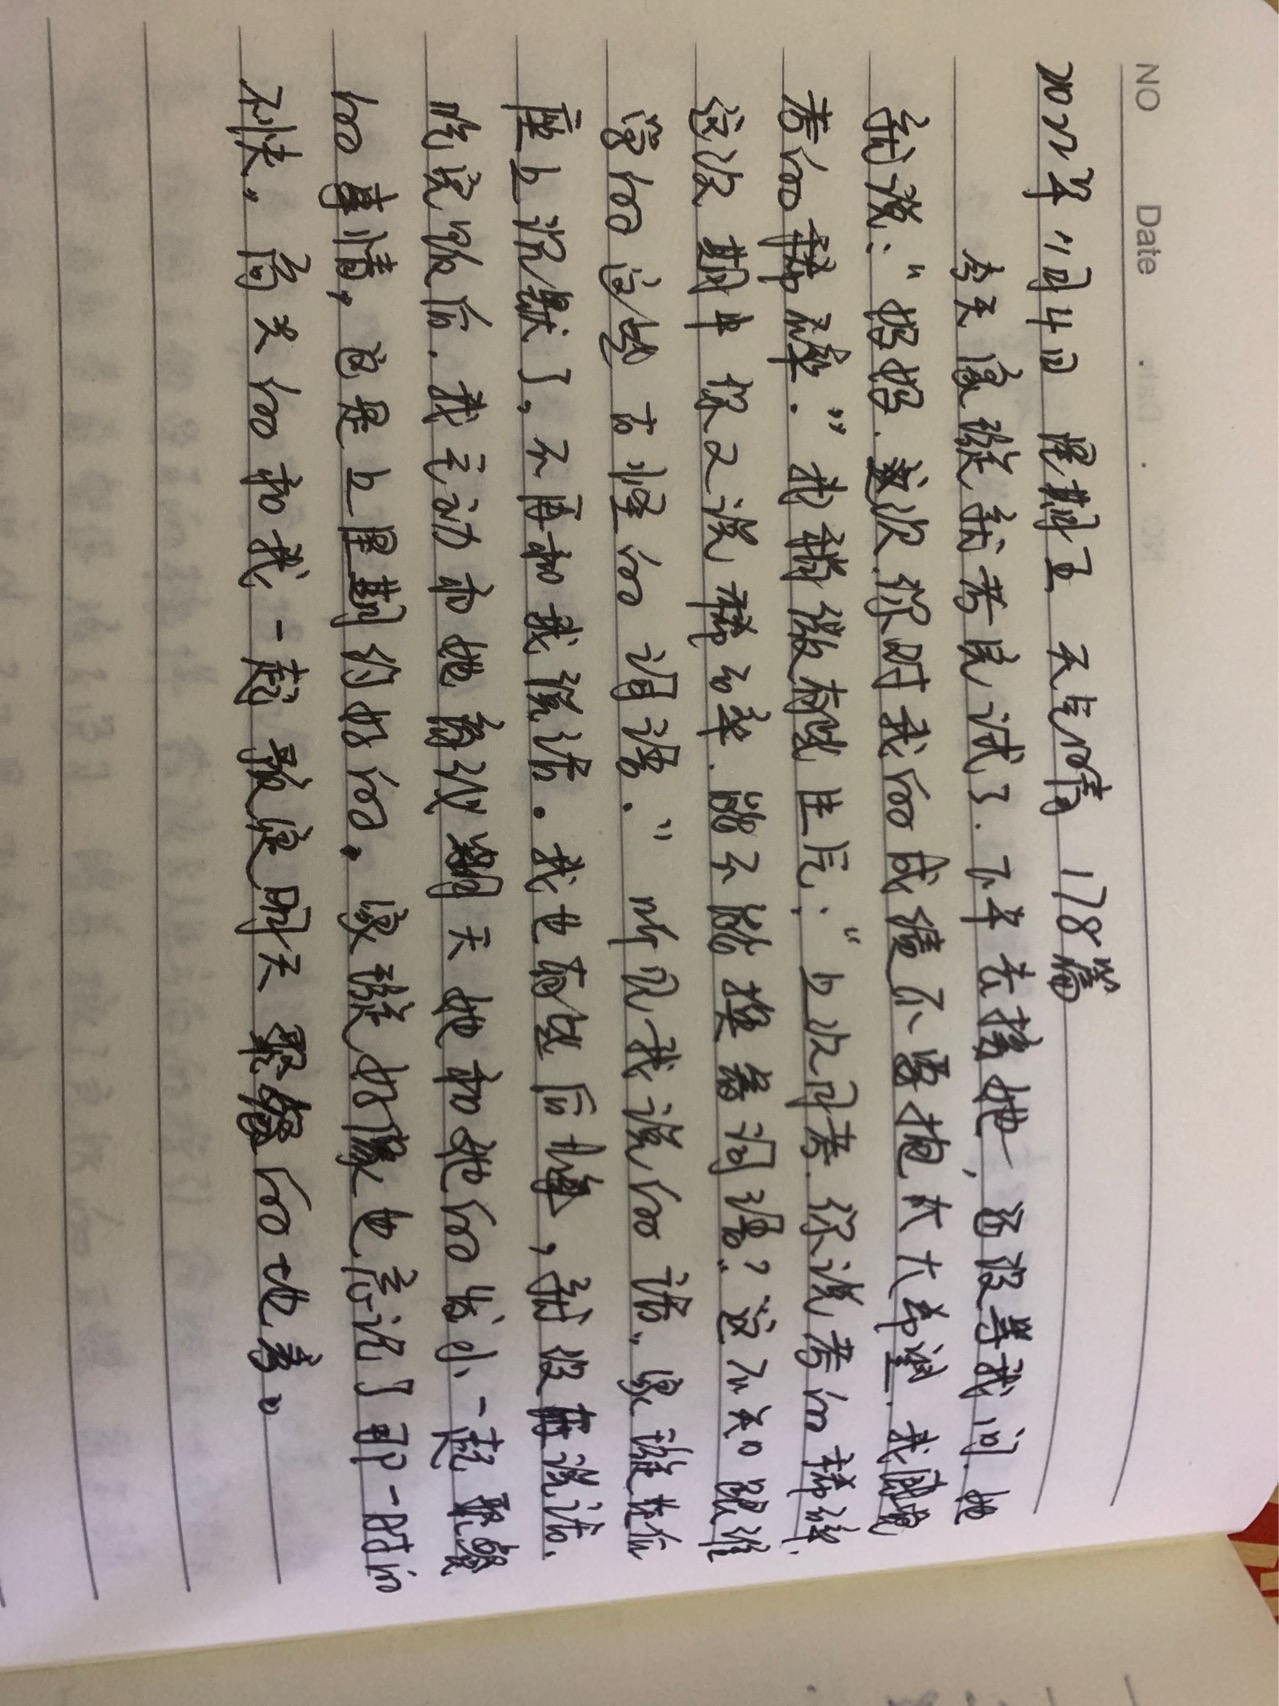 NO Date
2022年11月4日 星期五 天气晴 178篇
今天家璇就考完试了.下午去接她,还没等我问.她
就说:“妈妈.这次你对我的成绩不要抱太大希望.我感觉
考的稀碎.”我稍微有些生气:“上次月考.你说考的稀碎.
这次期中你又说稀碎.能不能换备词语?这不知跟谁
学的这些古怪的词语.”听见我说的话.家璇在后
座上沉默了,不再和我说话。我也有些后悔,就没再说话.
吃完晚饭后.我主动和她商议明天她和她的发小一起聚餐
的事情,这是上星期约好的。家璇好像也忘记了那一时的
不快.高兴的和我一起敲定明天聚餐的地方。